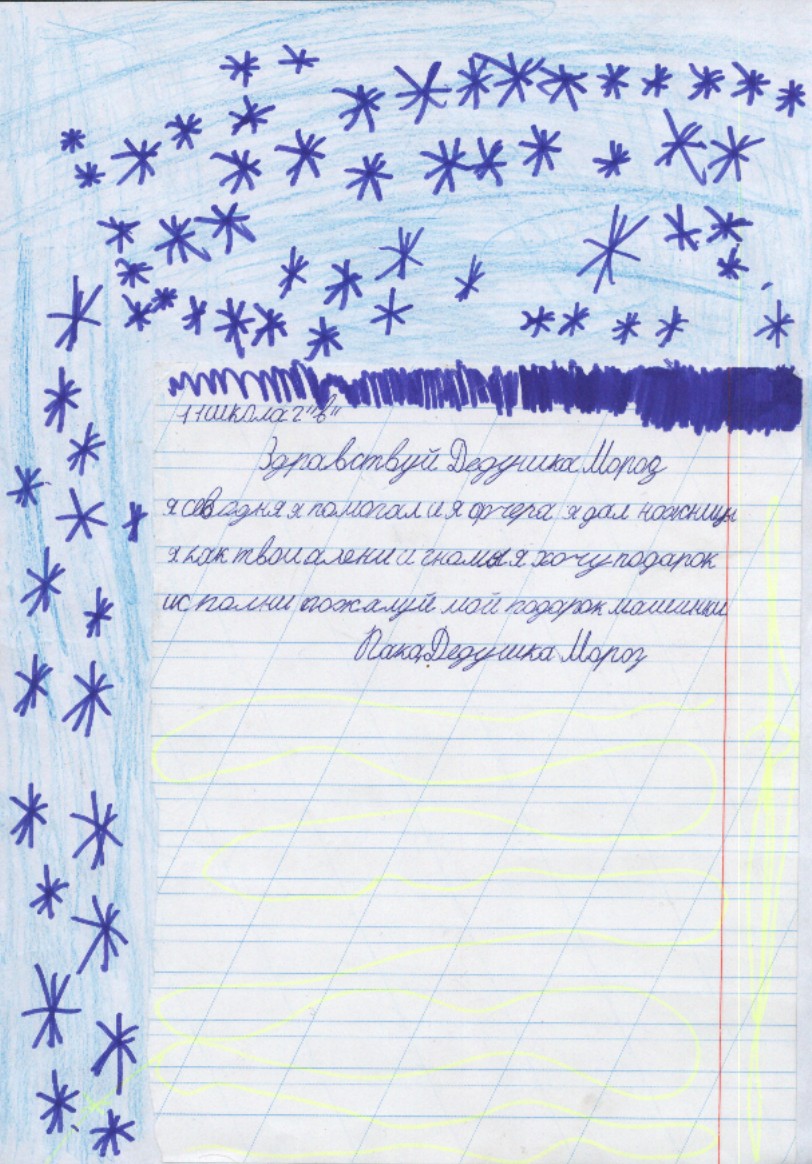 11 школа 2 "в"
Здравствуй Дедушка Мороз
я севодня я помогал и я фчера я дал ножницы
я как твои алени и гномы я хочу подарок
исполни пожалуй мой подарок машинки
Пака Дедушка Мороз